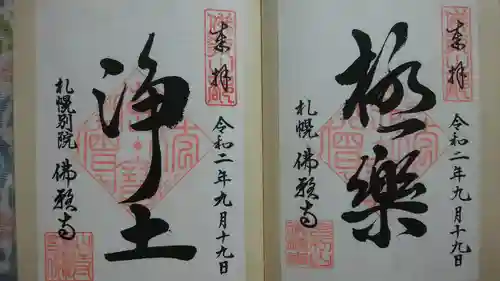 奉拝
極樂
令和二年九月十九日
札幌 佛願寺
奉拝
浄土
令和二年九月十九日
札幌別院 佛願寺